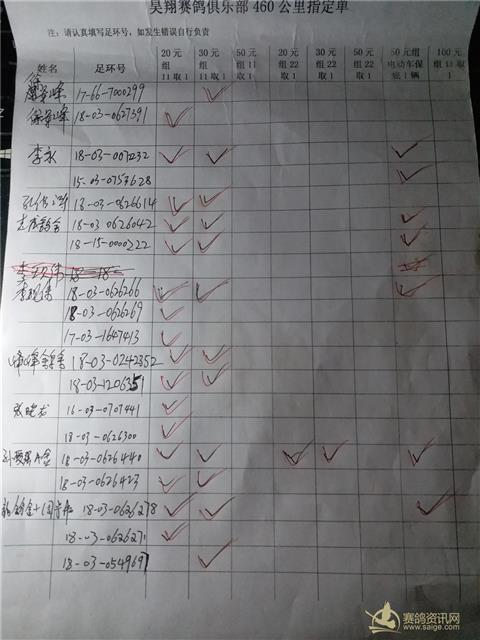 昊翔赛鸽俱乐部 460 公里指定单
注：请认真填写足环号，如发生错误自行负责
姓名 足环号 20 元组 11 取 1 30 元组 11 取 1 50 元组 11 取 1 20 元组 22 取 1 30 元组 22 取 1 50 元组 22 取 1 50 元组电动车保底 1 辆 100 元组 11 取 1
17-66-7000299
18-03-0627391
李永 18-03-0070232
15-03-0757628
18-03-0626614
18-03-0626042
18-15-0000222
18-03-0626266
18-03-0626269
17-03-1647413
18-03-0242352
18-03-1206351
张晓龙 16-03-0707441
18-03-0626300
18-03-0626440
18-03-0626423
18-03-0626278
18-03-0626271
18-03-0549691
赛鸽资讯网
www.saige.com